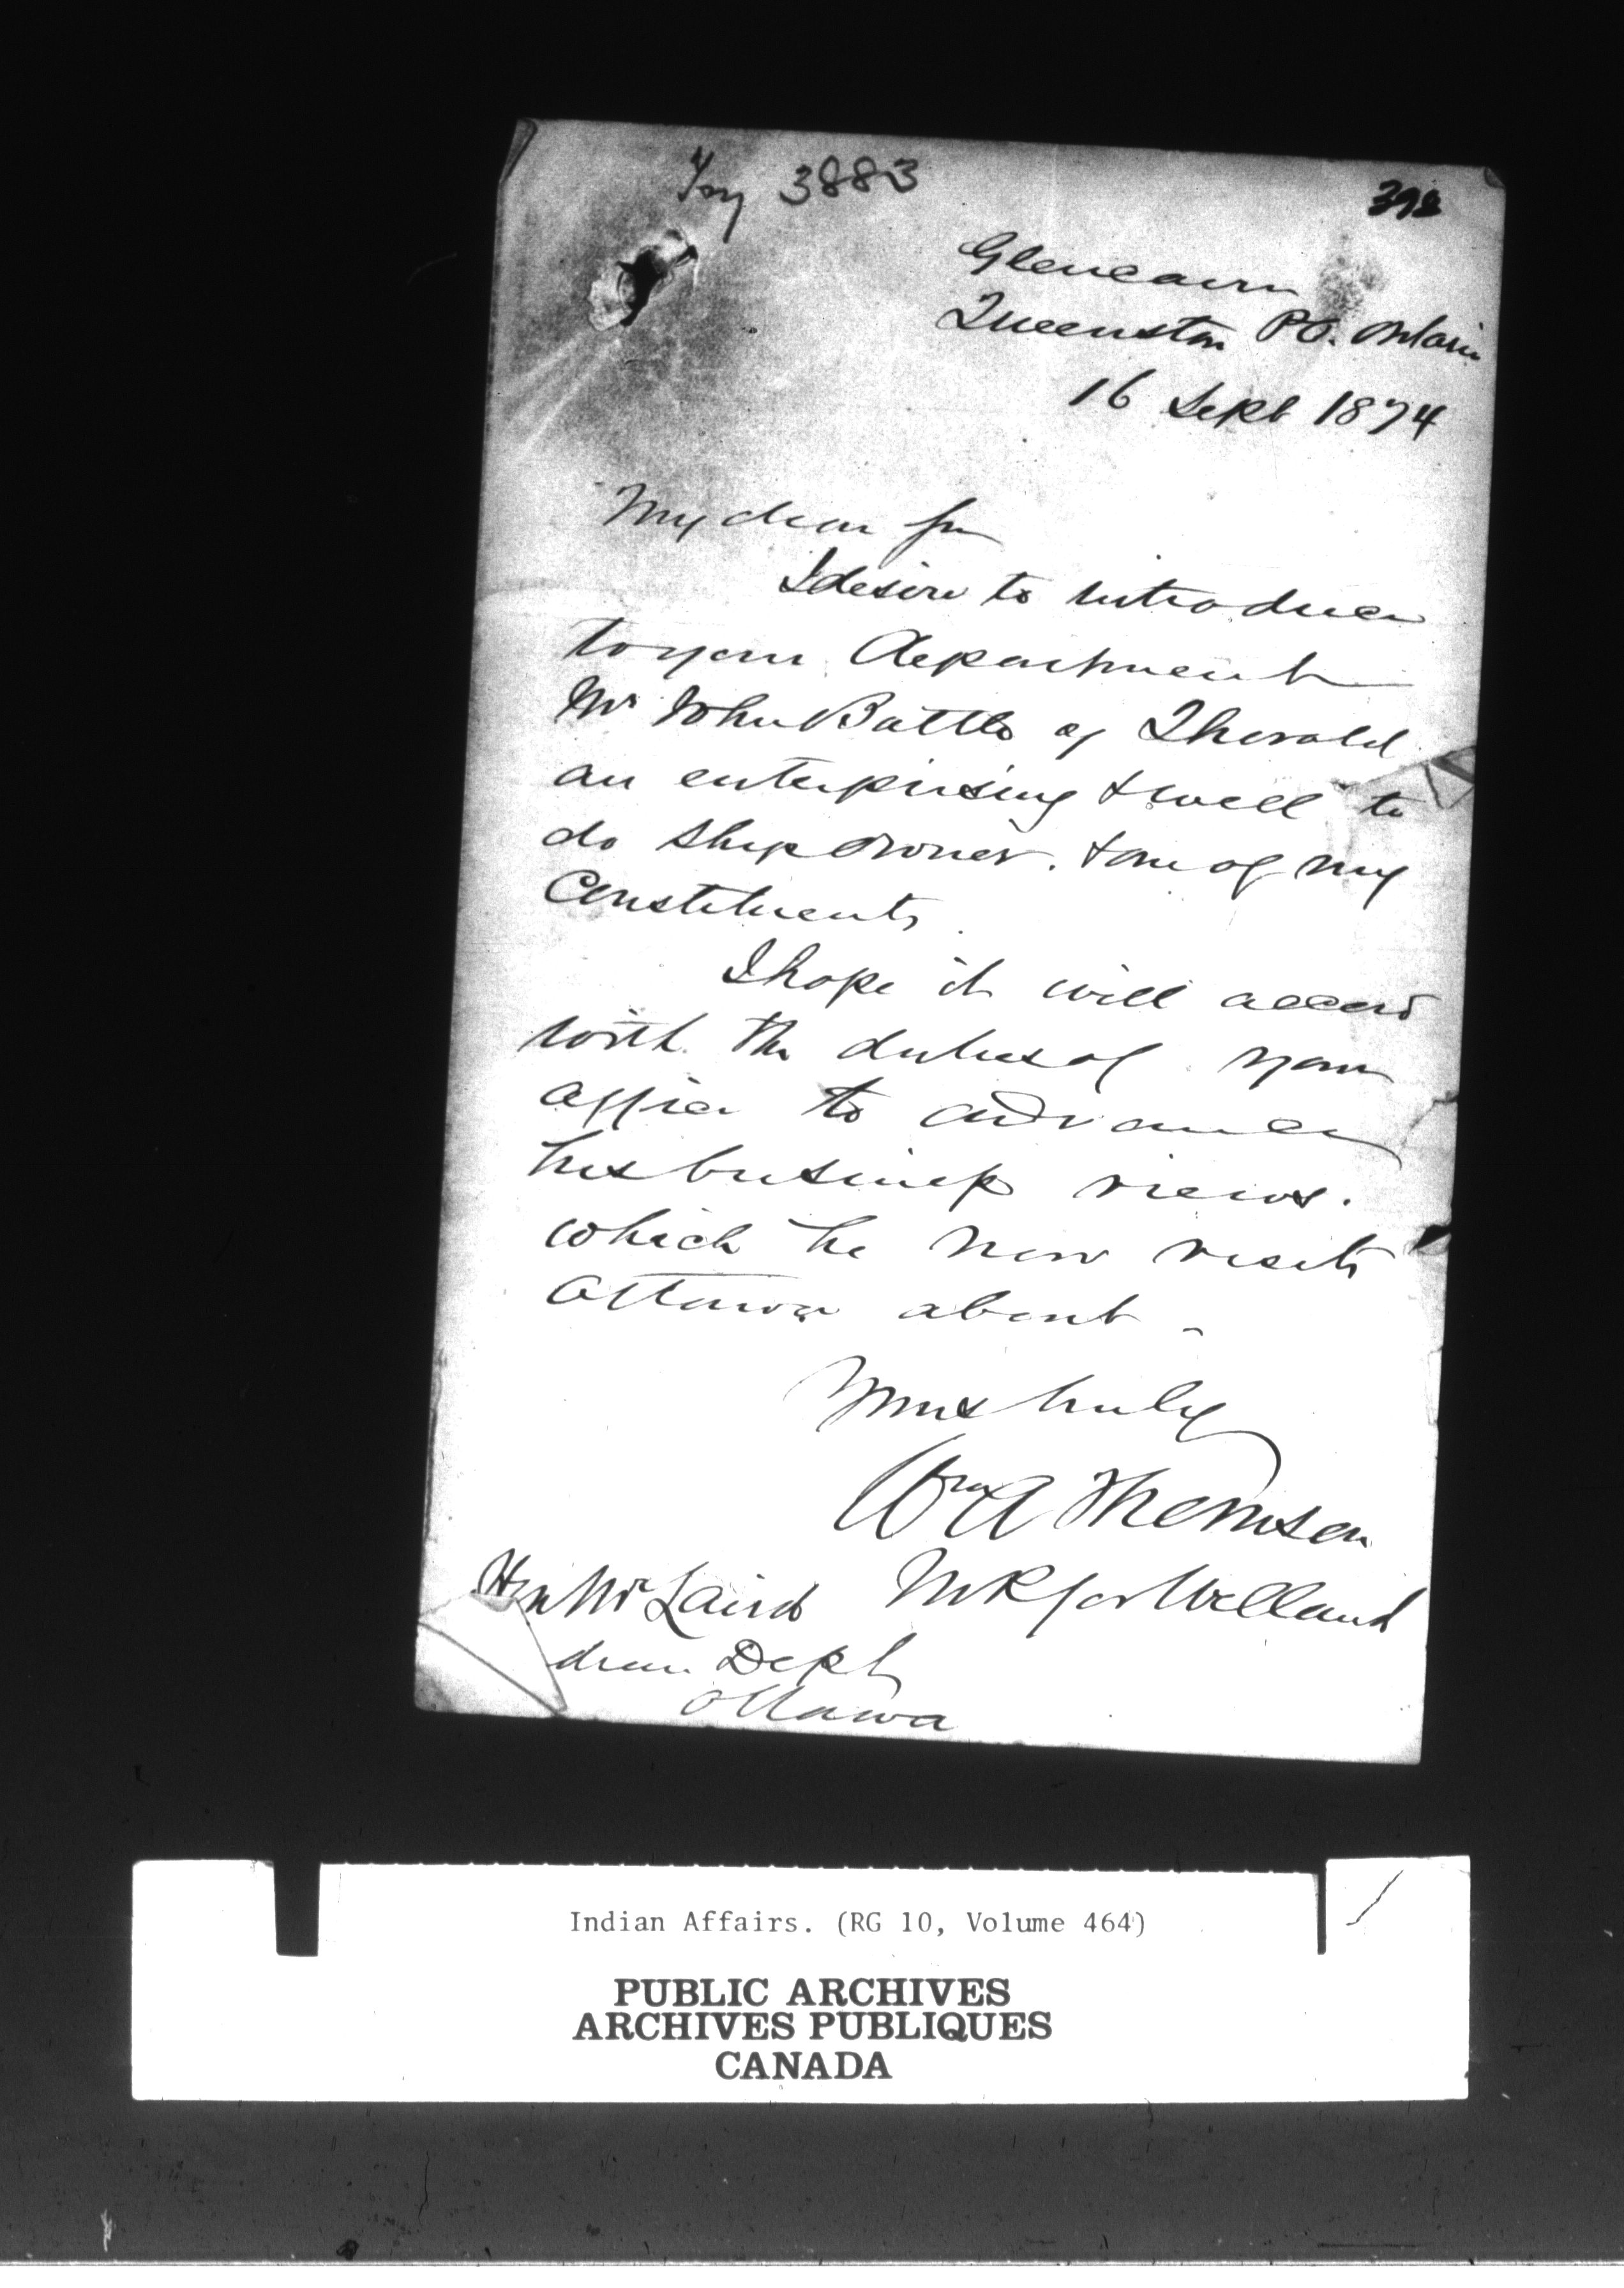 3883
398
Glencairn
Queenston P.O. Ontario
16 Sept 1874
My dear Sir
I desire to introduce
to your Department
Mr John Battle of Thorold
an enterprising & well to
do ship owner. & one of my
Constituents.
I hope it will accord
with the duties of your
office to advance
his business views.
which he now visits
Ottawa about -
Yours truly
Wm A Thomson
MP for Welland
Hon Mr Laird
Dept
Ottawa
Indian Affairs. (RG 10, Volume 464)
PUBLIC ARCHIVES
ARCHIVES PUBLIQUES
CANADA